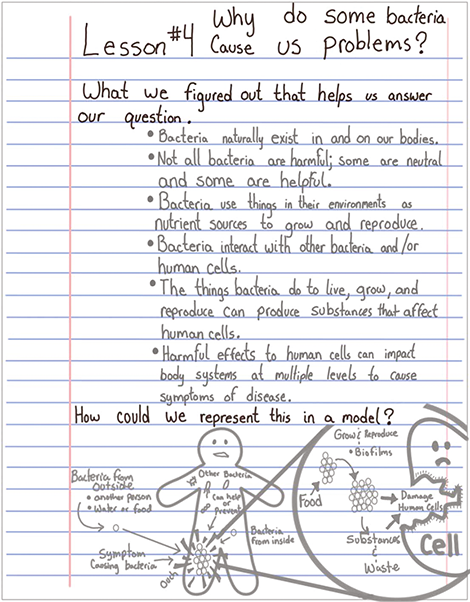 Lesson #4 Why do some bacteria
Cause us problems?
What we figured out that helps us answer
our question.
• Bacteria naturally exist in and on our bodies.
• Not all bacteria are harmful; some are neutral
and some are helpful.
• Bacteria use things in their environments as
nutrient sources to grow and reproduce.
• Bacteria interact with other bacteria and/or
human cells.
• The things bacteria do to live, grow, and
reproduce can produce substances that affect
human cells.
• Harmful effects to human cells can impact
body systems at multiple levels to cause
symptoms of disease.
How could we represent this in a model?
Bacteria from
Outside
• another person
• Water or food
Symptom
Causing bacteria
Ouch
Other Bacteria
Can help
or
Prevent
Bacteria
from inside
Grow & Reproduce
• Biofilms
Food
Damage
Human Cells
Substances
&
Waste
Cell